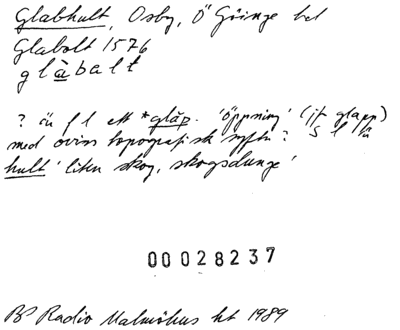 Glabhult, Osby, Ö Göinge hd
Glabolt 1576
glàbalt
? är f l ett *glap. 'öppning' (jf glapp)
med oviss topografisk syftn? S l är
hult 'liten skog, skogsdunge'
00028237
BP Radio Malmöhus ht 1989